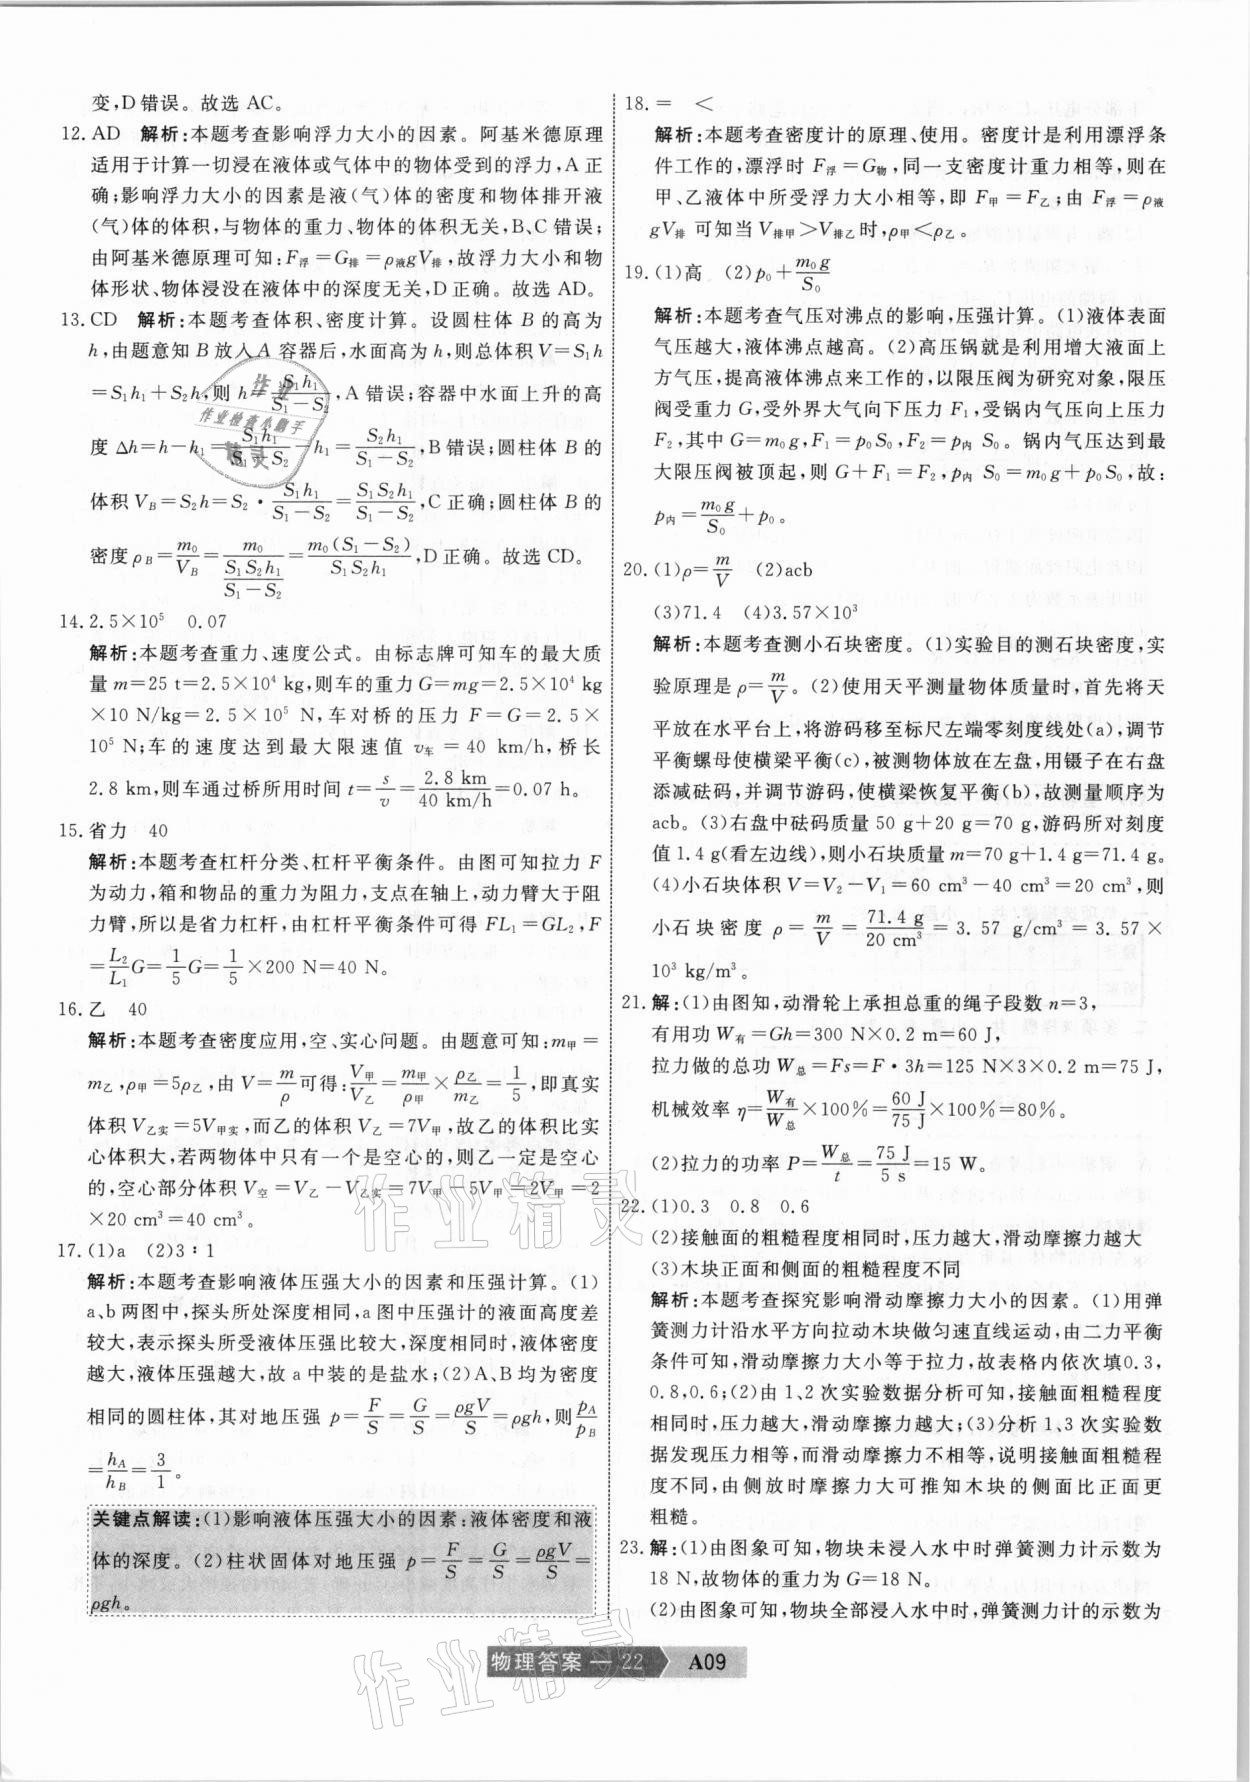 变,D错误。故选 AC。
12. AD 解析:本题考查影响浮力大小的因素。阿基米德原理
适用于计算一切浸在液体或气体中的物体受到的浮力,A 正
确;影响浮力大小的因素是液(气)体的密度和物体排开液
(气)体的体积,与物体的重力、物体的体积无关,B、C 错误;
由阿基米德原理可知:F浮=G排=ρ液gV排,故浮力大小和物
体形状、物体浸没在液体中的深度无关,D 正确。故选 AD。
13. CD 解析:本题考查体积、密度计算。设圆柱体 B 的高为
h,由题意知 B 放入 A 容器后,水面高为 h,则总体积 V=S₁h
=S₁h₁+S₂h,则 h=S₁h₁/(S₁-S₂),A 错误;容器中水面上升的高
度 Δh=h-h₁=S₁h₁/(S₁-S₂)-h₁=S₂h₁/(S₁-S₂),B 错误;圆柱体 B 的
体积 V_B=S₂h=S₂·S₁h₁/(S₁-S₂)=S₁S₂h₁/(S₁-S₂),C 正确;圆柱体 B 的
密度 ρ_B=m₀/V_B=m₀/(S₁S₂h₁/(S₁-S₂))=m₀(S₁-S₂)/(S₁S₂h₁),D 正确。故选 CD。
14. 2.5×10⁵ 0.07
解析:本题考查重力、速度公式。由标志牌可知车的最大质
量 m=25 t=2.5×10⁴ kg,则车的重力 G=mg=2.5×10⁴ kg
×10 N/kg=2.5×10⁵ N,车对桥的压力 F=G=2.5×
10⁵ N;车的速度达到最大限速值 v车=40 km/h,桥长
2.8 km,则车通过桥所用时间 t=s/v=2.8 km/40 km/h=0.07 h。
15. 省力 40
解析:本题考查杠杆分类、杠杆平衡条件。由图可知拉力 F
为动力,箱和物品的重力为阻力,支点在轴上,动力臂大于阻
力臂,所以是省力杠杆,由杠杆平衡条件可得 FL₁=GL₂,F
=L₂/L₁G=1/5G=1/5×200 N=40 N。
16. 乙 40
解析:本题考查密度应用,空、实心问题。由题意可知:m甲=
m乙,ρ甲=5ρ乙,由 V=m/ρ可得:V甲/V乙=m甲/ρ甲×ρ乙/m乙=1/5,即真实
体积 V乙实=5V甲实,而乙的体积 V乙=7V甲,故乙的体积比实
心体积大,若两物体中只有一个是空心的,则乙一定是空心
的,空心部分体积 V空=V乙-V乙实=7V甲-5V甲=2V甲=2
×20 cm³=40 cm³。
17. (1)a (2)3∶1
解析:本题考查影响液体压强大小的因素和压强计算。(1)
a、b 两图中,探头所处深度相同,a 图中压强计的液面高度差
较大,表示探头所受液体压强比较大,深度相同时,液体密度
越大,液体压强越大,故 a 中装的是盐水;(2)A、B 均为密度
相同的圆柱体,其对地压强 p=F/S=G/S=ρgV/S=ρgh,则p_A/p_B
=h_A/h_B=3/1。
关键点解读:(1)影响液体压强大小的因素:液体密度和液
体的深度。(2)柱状固体对地压强 p=F/S=G/S=ρgV/S=
ρgh。
18. = <
解析:本题考查密度计的原理、使用。密度计是利用漂浮条
件工作的,漂浮时 F浮=G物,同一支密度计重力相等,则在
甲、乙液体中所受浮力大小相等,即 F甲=F乙;由 F浮=ρ液
gV排 可知当 V排甲>V排乙时,ρ甲<ρ乙。
19. (1)高 (2)p₀+m₀g/S₀
解析:本题考查气压对沸点的影响,压强计算。(1)液体表面
气压越大,液体沸点越高。(2)高压锅就是利用增大液面上
方气压,提高液体沸点来工作的,以限压阀为研究对象,限压
阀受重力 G,受外界大气向下压力 F₁,受锅内气压向上压力
F₂,其中 G=m₀g,F₁=p₀S₀,F₂=p内 S₀。锅内气压达到最
大限压阀被顶起,则 G+F₁=F₂,p内 S₀=m₀g+p₀S₀,故:
p内=m₀g/S₀+p₀。
20. (1)ρ=m/V (2)acb
(3)71.4 (4)3.57×10³
解析:本题考查测小石块密度。(1)实验目的测石块密度,实
验原理是 ρ=m/V。(2)使用天平测量物体质量时,首先将天
平放在水平台上,将游码移至标尺左端零刻度线处(a),调节
平衡螺母使横梁平衡(c),被测物体放在左盘,用镊子在右盘
添减砝码,并调节游码,使横梁恢复平衡(b),故测量顺序为
acb。(3)右盘中砝码质量 50 g+20 g=70 g,游码所对刻度
值 1.4 g(看左边线),则小石块质量 m=70 g+1.4 g=71.4 g。
(4)小石块体积 V=V₂-V₁=60 cm³-40 cm³=20 cm³,则
小石块密度 ρ=m/V=71.4 g/20 cm³=3.57 g/cm³=3.57×
10³ kg/m³。
21. 解:(1)由图知,动滑轮上承担总重的绳子段数 n=3,
有用功 W有=Gh=300 N×0.2 m=60 J,
拉力做的总功 W总=Fs=F·3h=125 N×3×0.2 m=75 J,
机械效率 η=W有/W总×100%=60 J/75 J×100%=80%。
(2)拉力的功率 P=W总/t=75 J/5 s=15 W。
22. (1)0.3 0.8 0.6
(2)接触面的粗糙程度相同时,压力越大,滑动摩擦力越大
(3)木块正面和侧面的粗糙程度不同
解析:本题考查探究影响滑动摩擦力大小的因素。(1)用弹
簧测力计沿水平方向拉动木块做匀速直线运动,由二力平衡
条件可知,滑动摩擦力大小等于拉力,故表格内依次填0.3,
0.8,0.6;(2)由 1、2 次实验数据分析可知,接触面粗糙程度
相同时,压力越大,滑动摩擦力越大;(3)分析 1、3 次实验数
据发现压力相等,而滑动摩擦力不相等,说明接触面粗糙程
度不同,由侧放时摩擦力大可推知木块的侧面比正面更
粗糙。
23. 解:(1)由图象可知,物块未浸入水中时弹簧测力计示数为
18 N,故物体的重力为 G=18 N。
(2)由图象可知,物块全部浸入水中时,弹簧测力计的示数为
物理答案 — 22 A09
作业
作业检查小助手
精灵
作业精灵
作业精灵